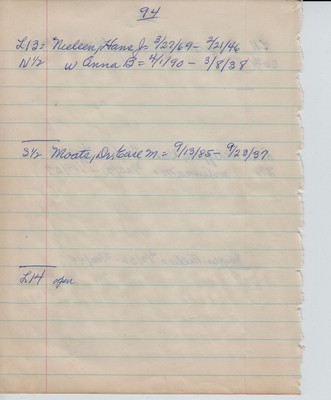 94
L13= Nielsen, Hans J= 3/27/69- 2/21/46
N1/2 w Anna B= 4/1/90 - 3/8/38
S1/2 Moats, Dr. Earl M.= 9/13/85- 9/23/37
L14 open